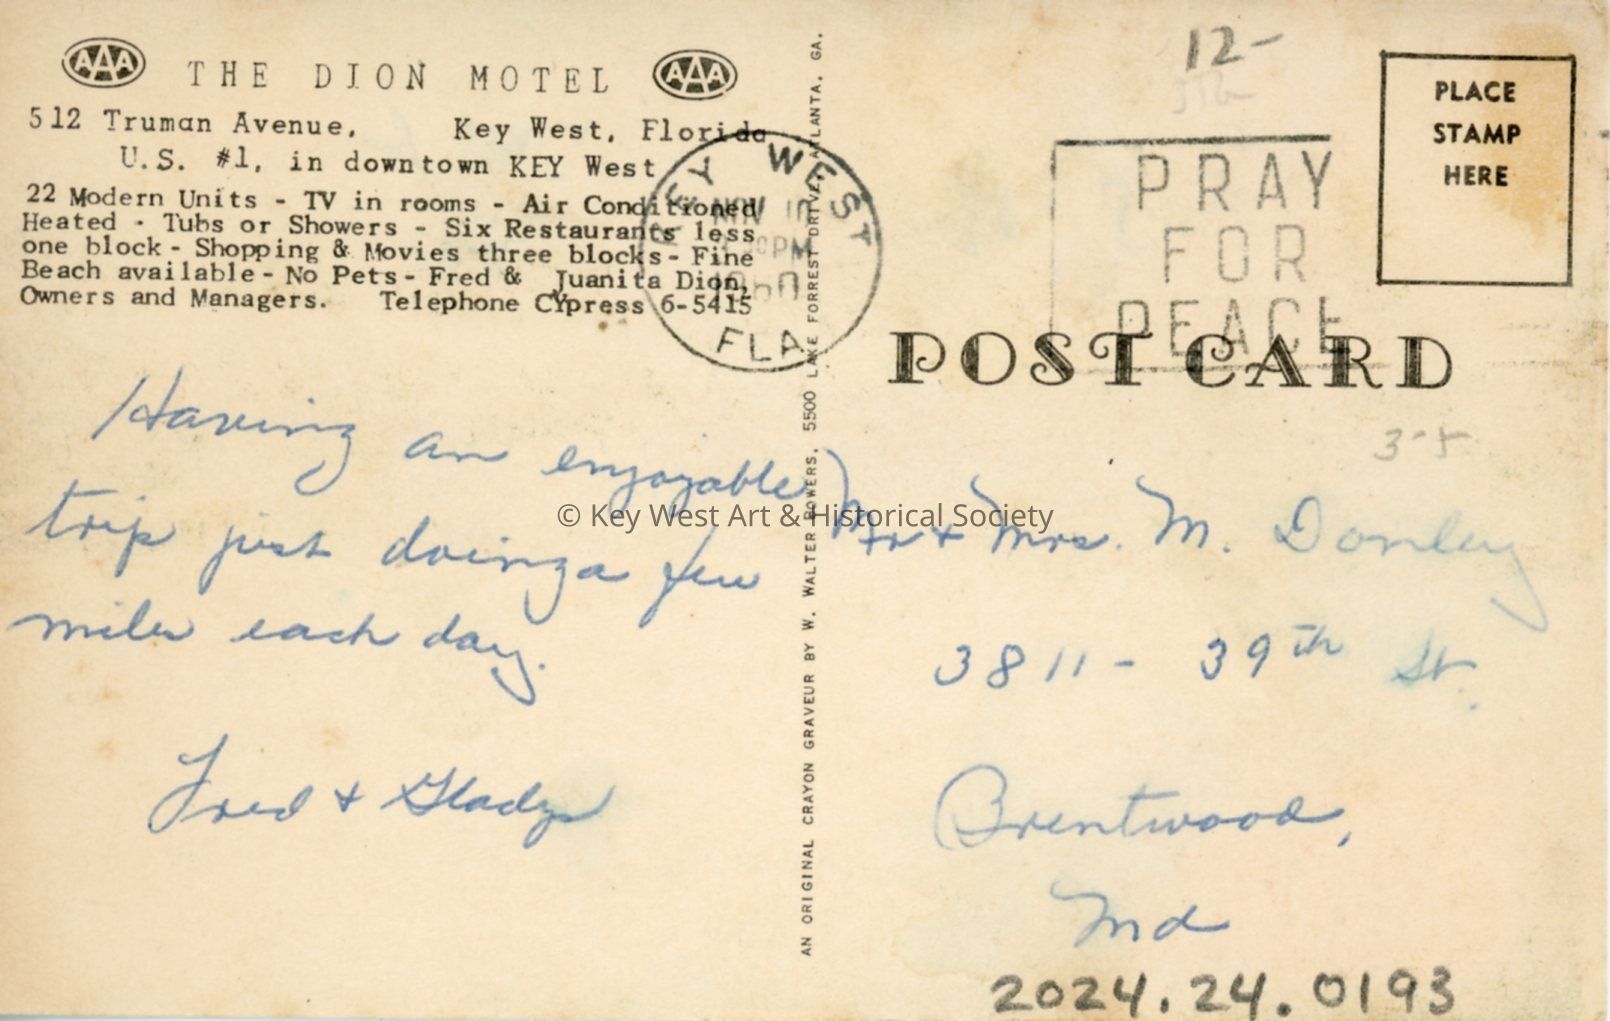 AAA THE DION MOTEL AAA
512 Truman Avenue, Key West, Florida
U.S. #1, in downtown KEY West
22 Modern Units - TV in rooms - Air Conditioned
Heated - Tubs or Showers - Six Restaurants less
one block - Shopping & Movies three blocks - Fine
Beach available - No Pets - Fred & Juanita Dion,
Owners and Managers. Telephone CYpress 6-5415
KEY WEST
NOV
PM
1960
FLA
Having an enjoyable
trip just doing a few
miles each day.
Fred & Gladys
AN ORIGINAL CRAYON GRAVEUR BY W. WALTER POWERS, 5500 LAKE FORREST DRIVE, ATLANTA, GA.
12-
PRAY
FOR
PEACE
PLACE
STAMP
HERE
POST CARD
3-5
© Key West Art & Historical Society
Mr & Mrs. M. Donley
3811 - 39th St.
Brentwood,
Md
2024.24.0193